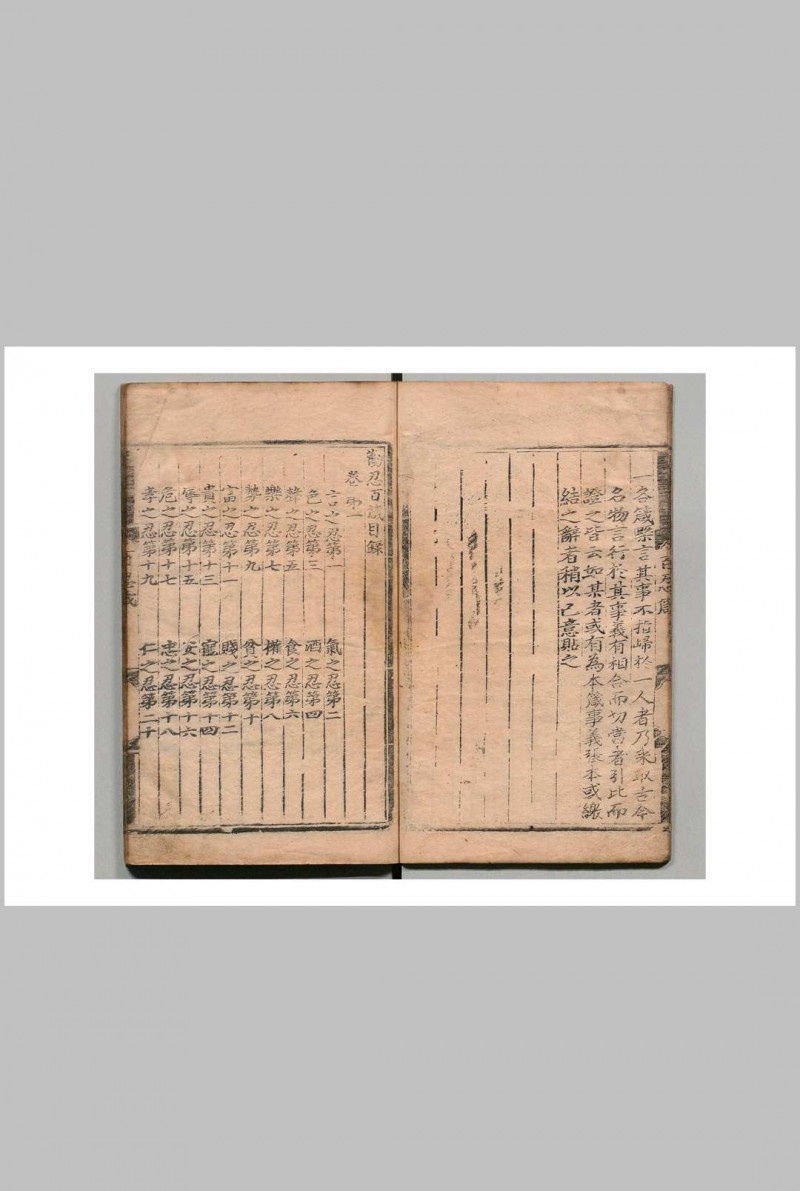 一各箴槩言其事不指歸於一人者乃采取古今
名物言行於其事義有相合而切當者引比而
證之皆云如某者或有為本箴事義張本或繳
結之辭者稍以己意貼之
勸忍百箴目錄
卷第一
言之忍第一 氣之忍第二
色之忍第三 酒之忍第四
聲之忍第五 食之忍第六
樂之忍第七 權之忍第八
勢之忍第九 貧之忍第十
富之忍第十一 賤之忍第十二
貴之忍第十三 寵之忍第十四
辱之忍第十五 安之忍第十六
危之忍第十七 忠之忍第十八
孝之忍第十九 仁之忍第二十